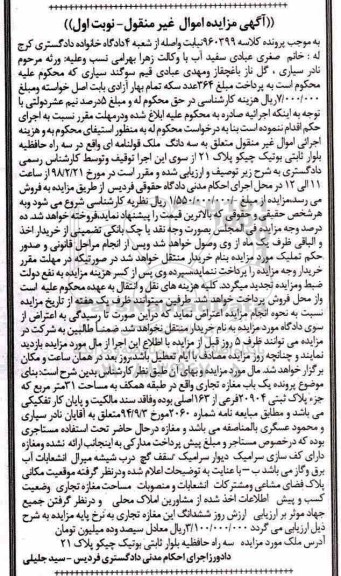 ((آگهی مزایده اموال غیر منقول- نوبت اول))
به موجب پرونده کلاسه ۹۶۰۳۹۹نیابت واصله از شعبه ۴دادگاه خانواده دادگستری کرج
له : خانم صغری عبادی سفید آب با وکالت زهرا بهرامی نسب وعلیه: ورثه مرحوم
نادر سیاری ، گل ناز باغچقاز ومهدی عبادی قیم سوگند سیاری که محکوم علیه
محکوم است به پرداخت مبلغ ۳۶۴عدد سکه تمام بهار آزادی بابت اصل خواسته ومبلغ
۷/۰۰۰/۰۰۰ریال هزینه کارشناسی در حق محکوم له و مبلغ ۵درصد نیم عشردولتی با
توجه به اینکه اجرائیه صادره به محکوم علیه ابلاغ شده ودرمهلت مقرر نسبت به اجرای
حکم اقدام ننموده است بنا به درخواست محکوم له به منظور استیفای محکوم به و هزینه
اجرائی اموال غیر منقول متعلق به سه دانگ ملک قولنامه ای واقع در سه راه حافظیه
بلوار ثابتی بوتیک چیکو پلاک ۲۱ از سوی این اجرا توقیف وتوسط کارشناس رسمی
دادگستری به شرح زیر توصیف و ارزیابی شده و مقرر است در مورخ ۹۸/۲/۲۱ از ساعت
۱۱ الی ۱۲ در محل اجرای احکام مدنی دادگاه حقوقی فردیس از طریق مزایده به فروش
می رسد،مزایده از مبلغ ۱/۵۵۰/۰۰۰/۰۰۰ ریال نظریه کارشناسی شروع می شود وبه
هرشخص حقیقی و حقوقی که بالاترین قیمت را پیشنهاد نماید،فروخته خواهد شد. ده
درصد وجه مزایده فی المجلس بصورت وجه نقد یا چک بانکی تضمینی از خریدار اخذ
و الباقی ظرف یک ماه از وی وصول خواهد شد وپس از انجام مراحل قانونی و صدور
حکم تملیک مورد مزایده بنام خریدار منتقل خواهد شد در صورتیکه در مهلت مقرر
خریدار وجه مزایده را پرداخت ننماید،سپرده وی پس از کسر هزینه مزایده به نفع دولت
ضبط ومزایده تجدید میگردد. کلیه هزینه های نقل و انتقال به عهده محکوم علیه است
واز محل فروش پرداخت خواهد شد. طرفین میتوانند ظرف یک هفته از تاریخ مزایده
نسبت به نحوه انجام مزایده اعتراض نماید که دراین صورت تا رسیدگی به اعتراض از
سوی دادگاه مورد مزایده به نام خریدار منتقل نخواهد شد. ضمناً طالبین به شرکت در
مزایده می توانند ظرف ۵ روز قبل از مزایده با اطلاع این اجرا از مال مورد مزایده بازدید
نمایند و چنانچه روز مزایده مصادف با ایام تعطیل باشد،روز بعد در همان ساعت و مکان
برگزار خواهد شد. مال مورد مزایده وبهای آن طبق نظر کارشناس بدین شرح است:بنای
موضوع پرونده یک باب مغازه تجاری واقع در طبقه همکف به مساحت ۳۱متر مربع که
جزء پلاک ثبتی ۲۰۹۰۴فرعی از ۱۶۳اصلی بوده وفاقد سند مالکیت و پایان کار تفکیکی
می باشد و مطابق مبایعه نامه شماره ۲۰۶۰مورخ ۹۴/۹/۳متعلق به آقایان نادر سیاری
و محمود عسگری بالمناصفه می باشد و مغازه درحال حاضر تحت استفاده مستاجری
بوده که درخصوص مستاجر و مبلغ پیش پرداخت مدارکی به اینجانب ارائه نشده ومغازه
دارای کف سازی سرامیک دیوار سرامیک سقف گچ درب شیشه میرال انشعابات آب
برق وگاز می باشد ب – با عنایت به توضیحات اعلام شده ودرنظر گرفته موقعیت مکانی
پلاک فضای مشاعی ومشترکات انشعابات و منصوبات مساحت مغازه تجاری وضعیت
کسب و پیش اطلاعات اخذ شده از مشاورین املاک محلی و درنظر گرفتن جمیع
جهاد موثر بر ارزیابی ارزش روز ششدانگ این مغازه تجاری به نرخ پایه مزایده به شرح
ذیل ارزیابی می گردد ۳/۱۰۰/۰۰۰/۰۰۰ریال معادل سیصد وده میلیون تومان
آدرس ملک مورد مزایده سه راه حافظیه بلوار ثابتی بوتیک چیکو پلاک ۲۱
دادورزاجرای احکام مدنی دادگستری فردیس – سید جلیلی